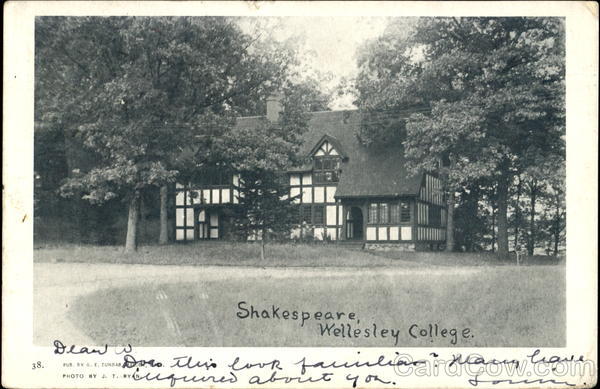 Shakespeare,
Wellesley College.
38.
PUB. BY G. E. DUNBAR,
PHOTO BY J. T. RYAN,
Dear W
Does this look familiar? Many have
inquired about you.
CardCow.com